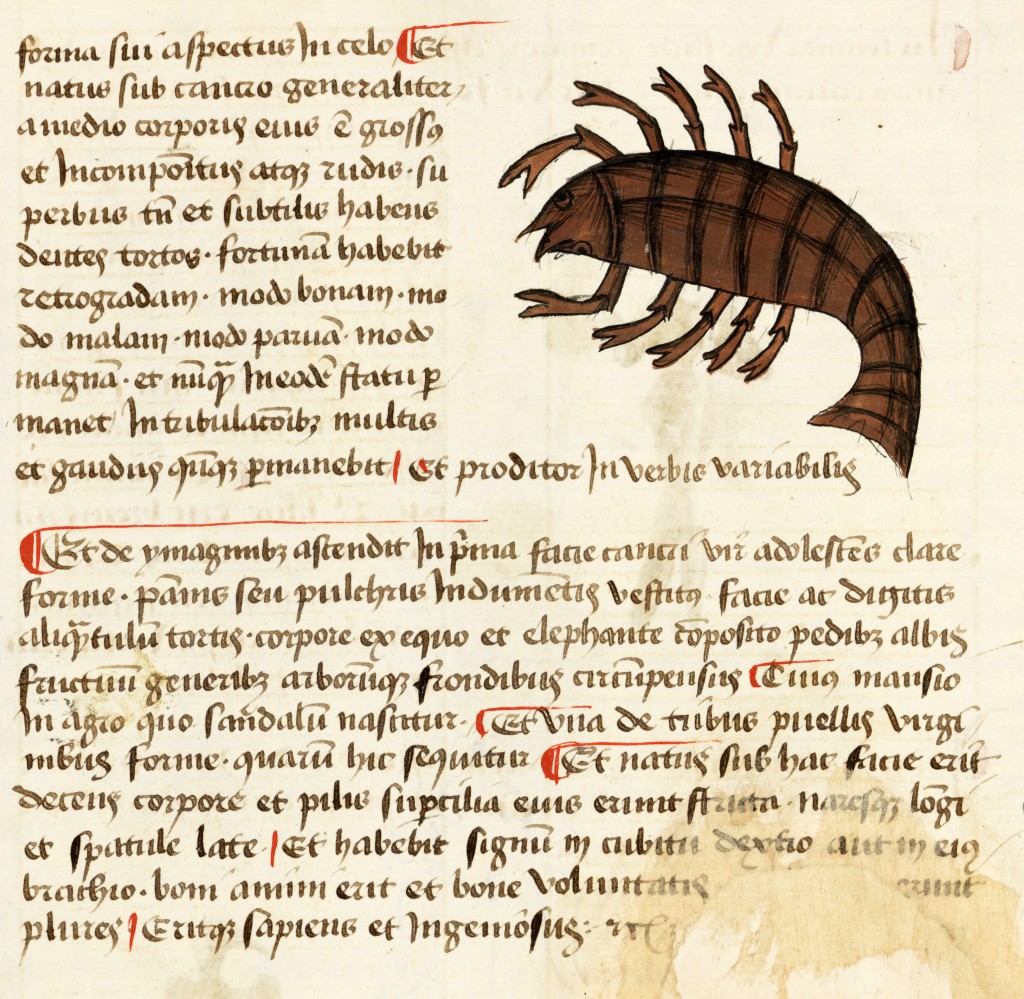 forma sui aspectus In celo Et
natus sub cancro generaliter
a medio corporis eius ē grossꝯ
et Incompōitus atqꝫ rudis · su
perbus tn̄ et subtilis habens
dentes tortos · fortunā habebit
retrogradam · modo bonam · mo
do malam · modo paruā · modo
magnā · et nūqᷓ In eodē statu ꝑ
manet In tribulacōibꝫ multis
et gaudijs ꝑmanebit Et proditor In verbis variabilis
Et de ymaginibꝫ ascendit In p̄ma facie cancri vir adolescēs clare
forme · pānis seu pulchris Indumētis vestitꝯ facie ac digitis
aliqᷓtulū tortis · corpore ex equo et elephante cōposito pedibꝫ albis
fructuū generibꝫ arborūqꝫ frondibus circūpensus Cuiꝯ mansio
In agro quo sandalū nascitur · Et vna de tribus puellis virgi
nibus forme · quarū hic sequitur Et natus sub hac facie erit
decens corpore et pilis suꝑcilia eius erunt stricta · naresqꝫ lōgi
et spatule late Et habebit signū in cubitu dextro aut in eiꝯ
brachio · boni animi erit et bone voluntatis erunt
plures Eritqꝫ sapiens et Ingeniosus